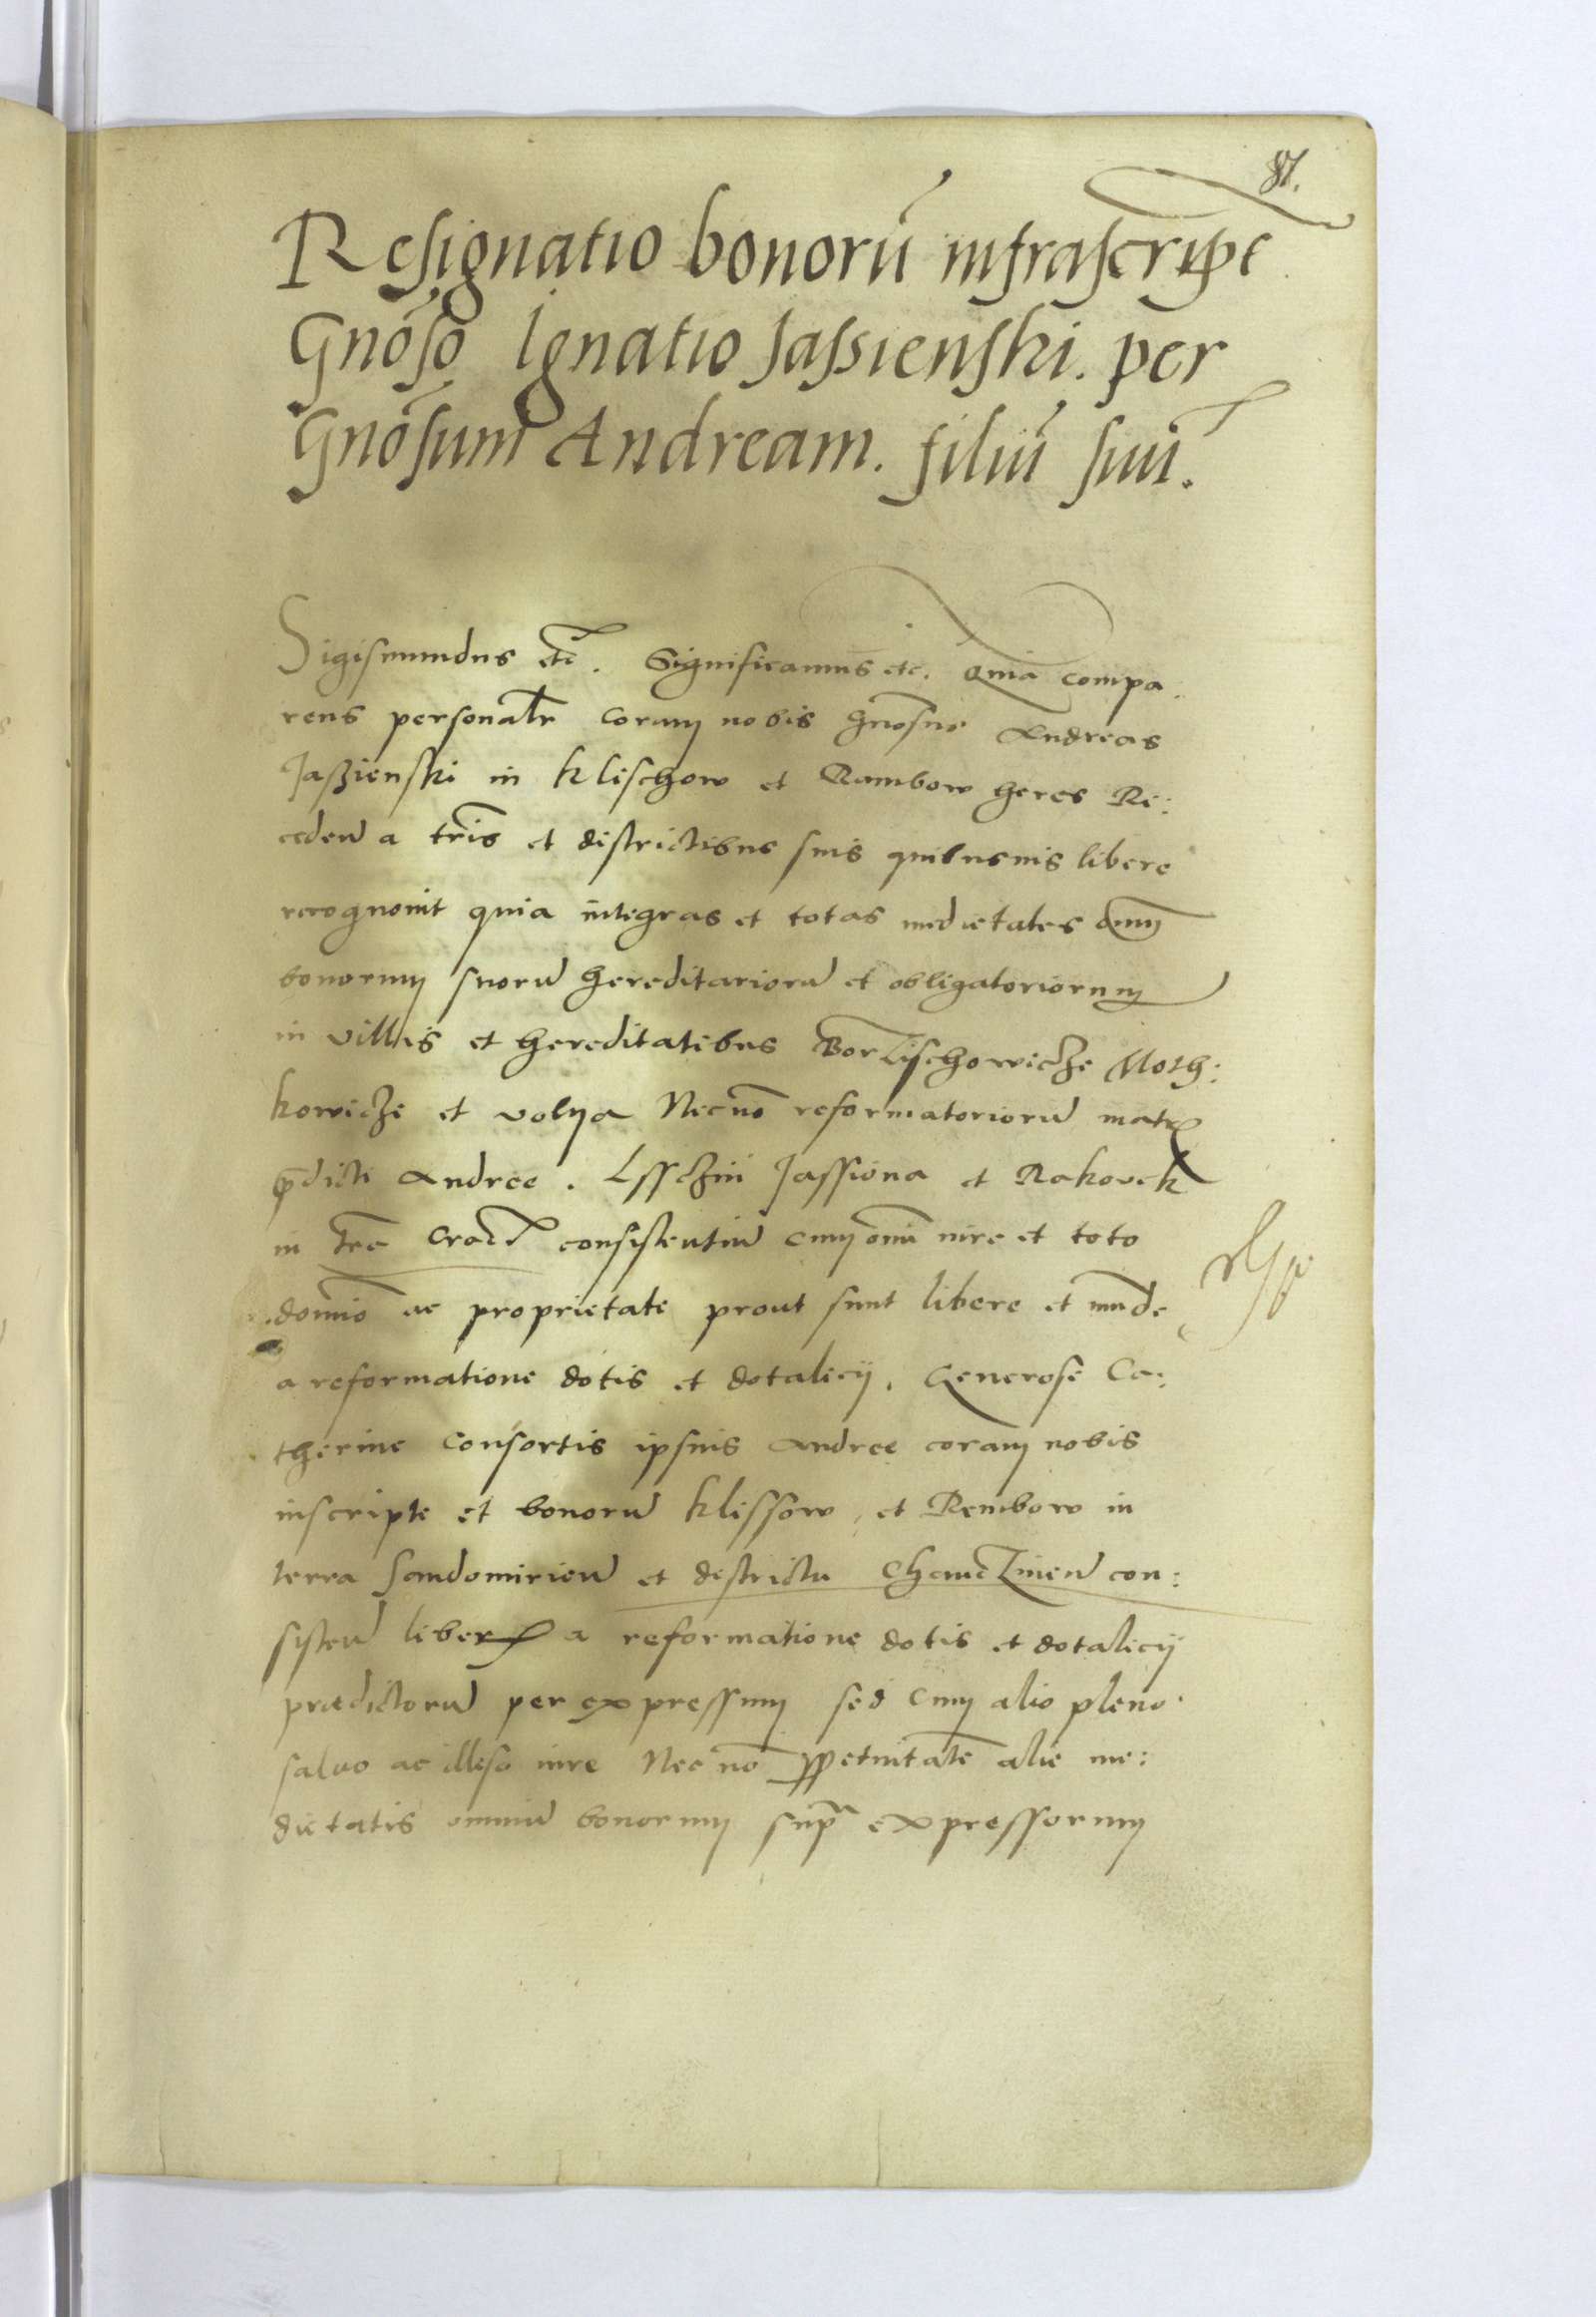 87.
Resignatio bonorū infrascript
Gnōso Ignatio Jassienski. per
Gnōsum Andream. filiū suū.
Sigismundus etc. Significamus etc. Quia compa:
rens personalr coram nobis Gnōsus Andreas
Jaszienski in Klischow et Rambow heres Re:
ceden̄ a trīs et districtibus suis quibusuis libere
recognouit quia integras et totas medietates omniū
bonorum suorū hereditariorū et obligatoriorum
in villis et hereditatibus Moth:
kowicze et volya Necnō reformatoriorū
p̄dicti Andree. Jassiona et Rakovek
in tra Crac̄ consistentiū cum omī iure et toto
domīo ac proprietate prout sunt libere et mūde
a reformatione dotis et dotalicij. Generose Ca:
therine Consortis ipsius Andree coram nobis
inscripte et bonorū Klissow, et Rembow in
terra Sandomirien̄ et districtu con:
sisten̄ a reformatione dotis et dotalicij
prædictorū per expressum sed cum alio pleno
saluo ac illeso iure Necnō ꝑpetuitatē alie me:
dietatis omniū bonorum supra expressorum